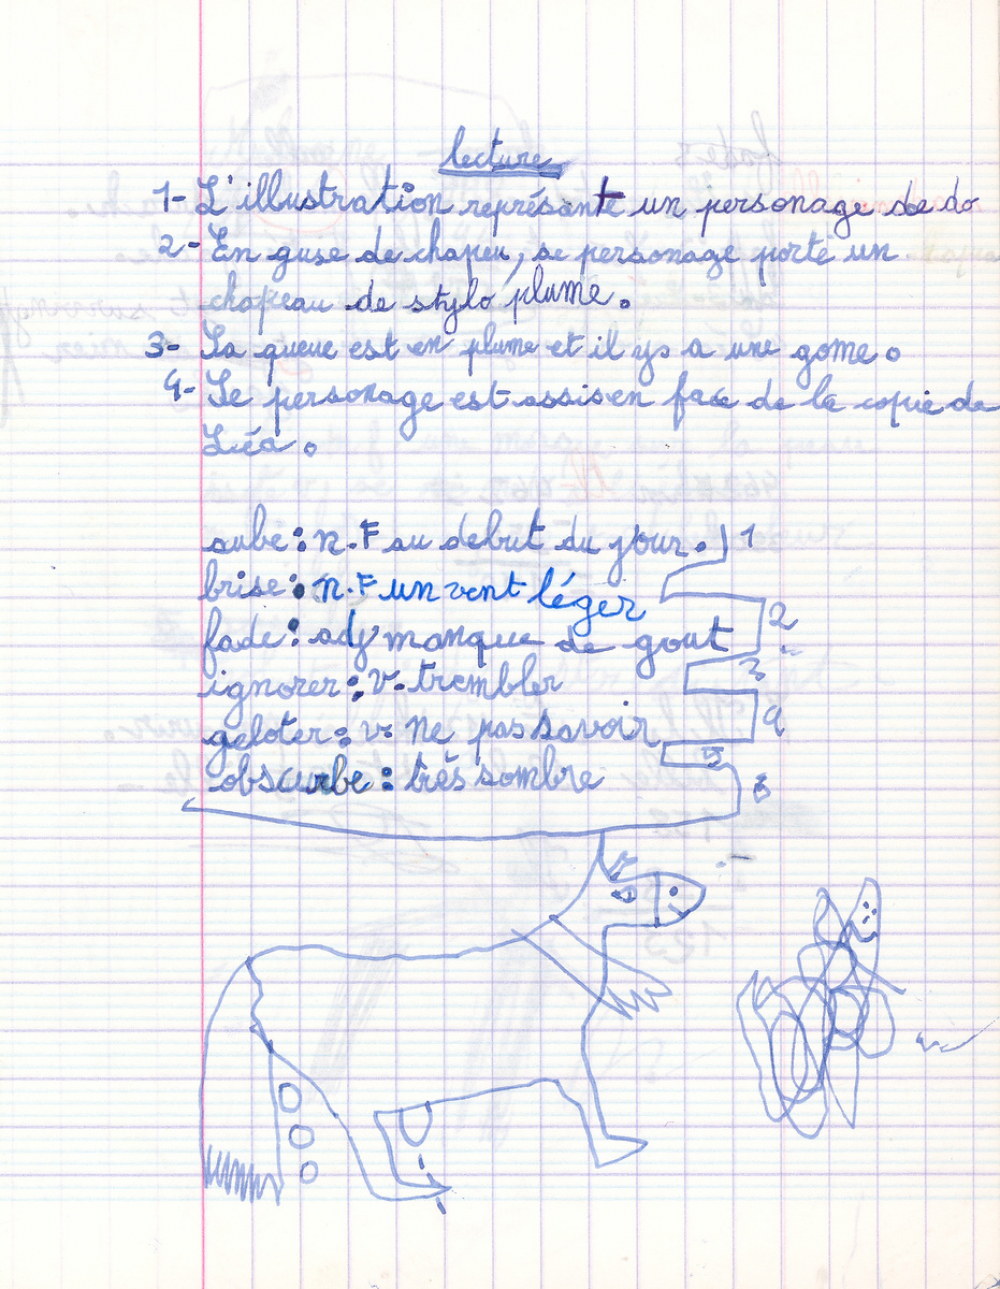 lecture
1- L'illustration représente un personage de do
2- En guse de chapeu, se personage porte un
chapeau de stylo plume.
3- Sa queue est en plume et il ys a une gome.
4- Le personage est assis en face de la copie de
Léa.
aube : n.F au debut du jour. 1
brise : n.F un vent léger
fade : adj manque de gout 2
ignorer : v. trembler 3
geloter : v. ne pas savoir 4
obscurbe : très sombre 5
6